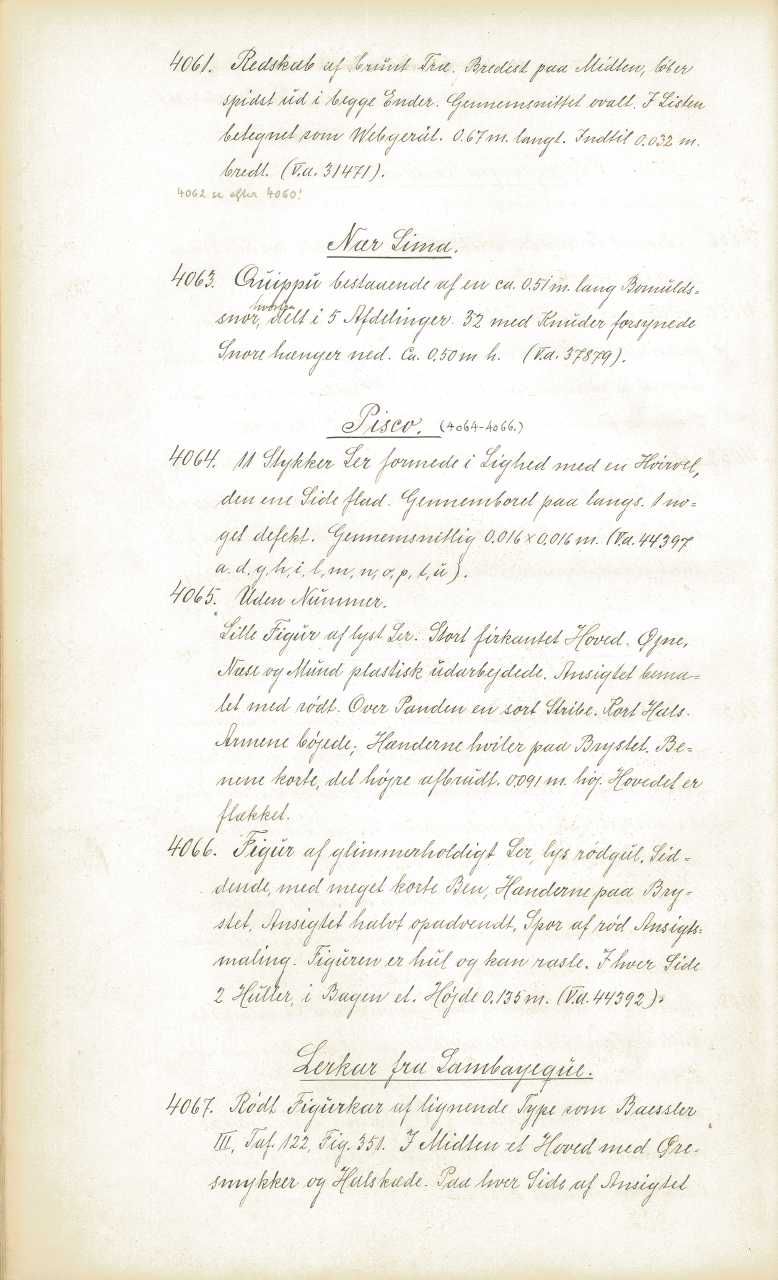 4061. Redskab af brunt Træ. Bredest paa Midten, løber
spidst ud i begge Ender. Gennemsnittet ovalt. I Listen
betegnet som Webgerät. 0.67 m. langt. Indtil 0.032 m.
bredt. (V.a. 31471).
4062 se efter 4060!
Nær Lima.
4063. Quippu bestaaende af en ca. 0.51 m. lang Bomulds=
snor, delt i 5 Afdelinger. 32 med Knuder forsynede
Snore hænger ned. Ca. 0,50 m h. (V.a. 37879).
Pisco. (4064-4066.)
4064. 11 Stykker Ler formede i Lighed med en Hvirvel,
den ene Side flad. Gennemboret paa langs. 1 no=
get defekt. Gennemsnitlig 0.016 x 0.016 m. (V.a. 44397
a. d, g, h, i, l, m, n, o, p, t, u).
4065. Uden Nummer.
Lille Figur af lyst Ler. Stort firkantet Hoved. Øjne,
Næse og Mund plastisk udarbejdede. Ansigtet bema=
let med rødt. Over Panden en sort Stribe. Kort Hals.
Armene bøjede; Hænderne hviler paa Brystet. Be=
nene korte, det højre afbrudt. 0.091 m. høj. Hovedet er
flækket.
4066. Figur af glimmerholdigt Ler, lys rødgul. Sid=
dende, med meget korte Ben, Hænderne paa Bry=
stet, Ansigtet halvt opadvendt, Spor af rød Ansigts=
maling. Figuren er hul og kan rasle. I hver Side
2 Huller, i Bagen et. Højde 0.135 m. (V.a. 44392).
Lerkar fra Lambayeque.
4067. Rødt Figurkar af lignende Type som Baessler
III, Taf. 122, Fig. 351. I Midten et Hoved med Øre-
smykker og Halskæde. Paa hver Side af Ansigtet